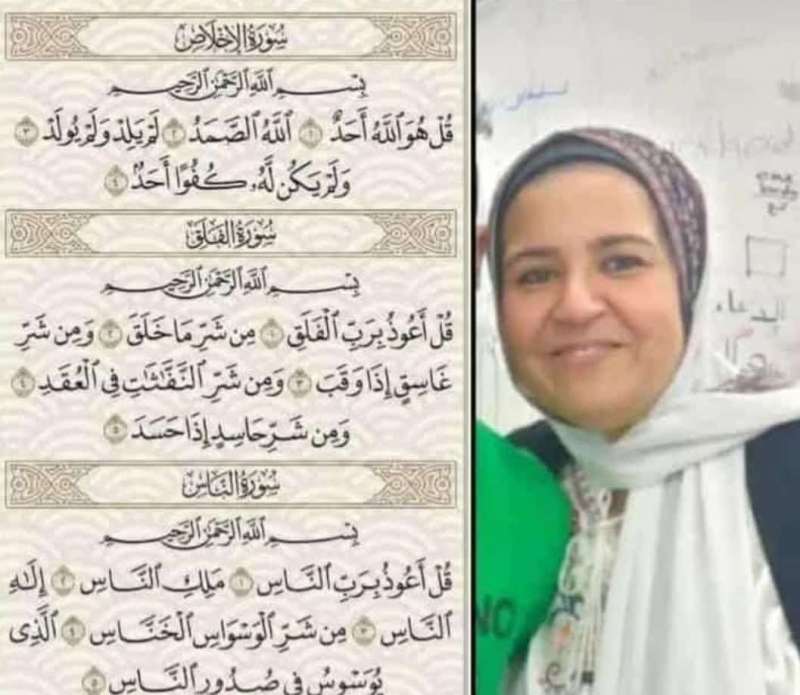 سُورَةُ الإِخْلَاصِ
بِسْمِ ٱللَّهِ ٱلرَّحْمَٰنِ ٱلرَّحِيمِ
قُلْ هُوَ ٱللَّهُ أَحَدٌ ١ ٱللَّهُ ٱلصَّمَدُ ٢ لَمْ يَلِدْ وَلَمْ يُولَدْ ٣
وَلَمْ يَكُن لَّهُۥ كُفُوًا أَحَدٌۢ ٤
سُورَةُ الْفَلَقِ
بِسْمِ ٱللَّهِ ٱلرَّحْمَٰنِ ٱلرَّحِيمِ
قُلْ أَعُوذُ بِرَبِّ ٱلْفَلَقِ ١ مِن شَرِّ مَا خَلَقَ ٢ وَمِن شَرِّ
غَاسِقٍ إِذَا وَقَبَ ٣ وَمِن شَرِّ ٱلنَّفَّٰثَٰتِ فِى ٱلْعُقَدِ ٤
وَمِن شَرِّ حَاسِدٍ إِذَا حَسَدَ ٥
سُورَةُ النَّاسِ
بِسْمِ ٱللَّهِ ٱلرَّحْمَٰنِ ٱلرَّحِيمِ
قُلْ أَعُوذُ بِرَبِّ ٱلنَّاسِ ١ مَلِكِ ٱلنَّاسِ ٢ إِلَٰهِ
ٱلنَّاسِ ٣ مِن شَرِّ ٱلْوَسْوَاسِ ٱلْخَنَّاسِ ٤ ٱلَّذِى
يُوَسْوِسُ فِى صُدُورِ ٱلنَّاسِ ٥
NO